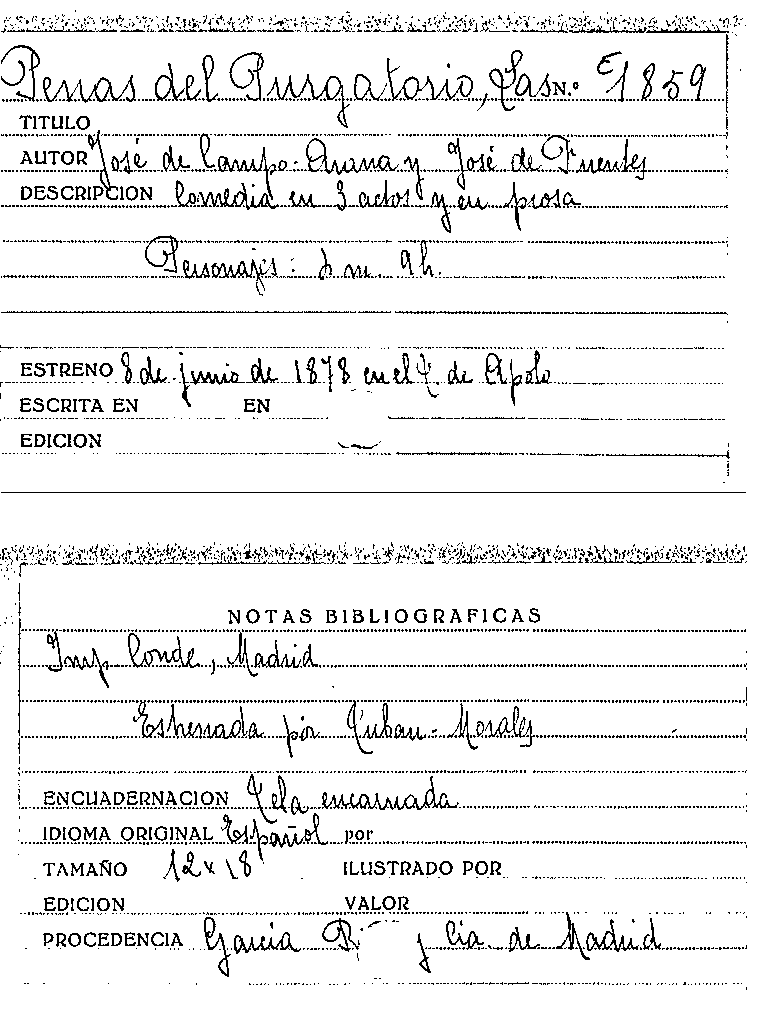 Penas del Purgatorio, Las N.º 1859
TITULO
AUTOR José de Campo-Arana y José de Fuentes
DESCRIPCION Comedia en 3 actos y en prosa
Personajes: m. 9 h.
ESTRENO 8 de junio de 1878 en el T. de Apolo
ESCRITA EN EN
EDICION
NOTAS BIBLIOGRAFICAS
Imp Conde, Madrid
Estrenada por Tubau-Morales
ENCUADERNACION Tela encarnada
IDIOMA ORIGINAL Español por
TAMAÑO 12x18 ILUSTRADO POR
EDICION VALOR
PROCEDENCIA García R y Cia. de Madrid